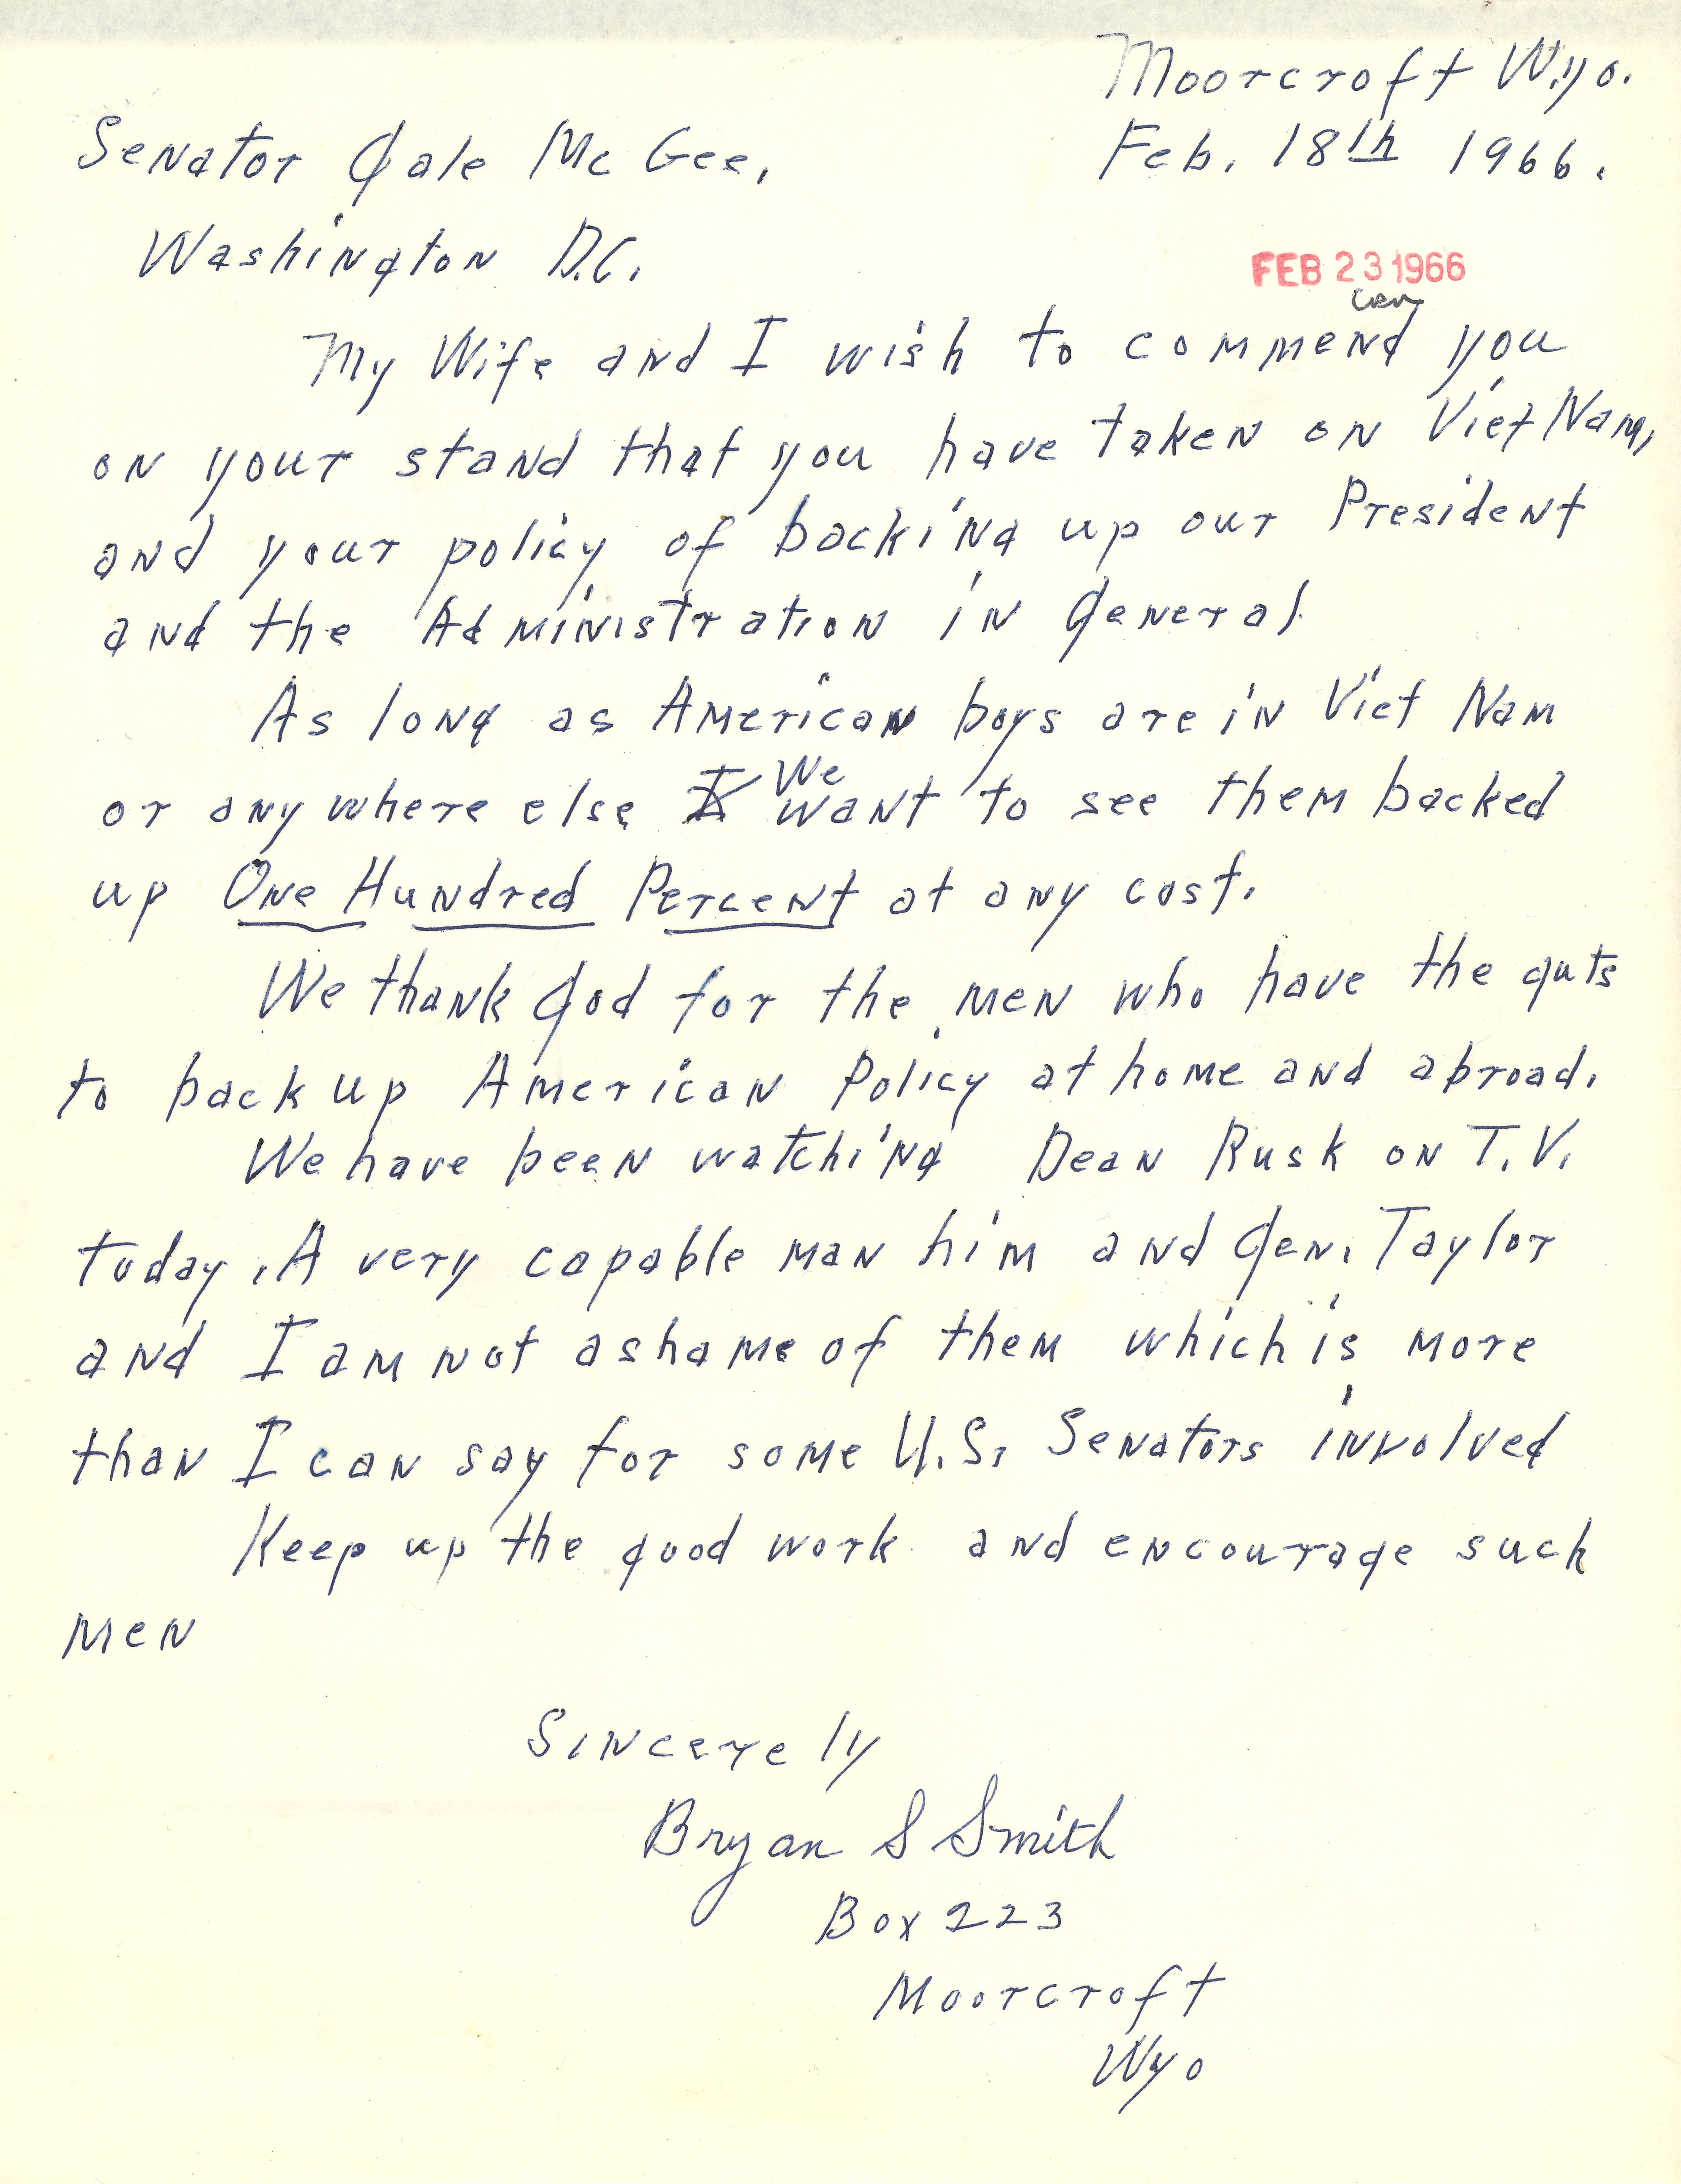 Moorcroft Wyo.
Senator Gale McGee, Feb. 18th 1966.
Washington D.C.
FEB 23 1966
My Wife and I wish to commend you
on your stand that you have taken on Viet Nam,
and your policy of backing up our President
and the Administration in General.
As long as American boys are in Viet Nam
or anywhere else I We want to see them backed
up One Hundred Percent at any cost.
We thank God for the men who have the guts
to back up American Policy at home and abroad.
We have been watching Dean Rusk on T.V.
today. A very capable man him and Gen. Taylor
and I am not ashame of them which is more
than I can say for some U.S. Senators involved
Keep up the good work and encourage such
men
Sincerely
Bryan S Smith
Box 223
Moorcroft
Wyo